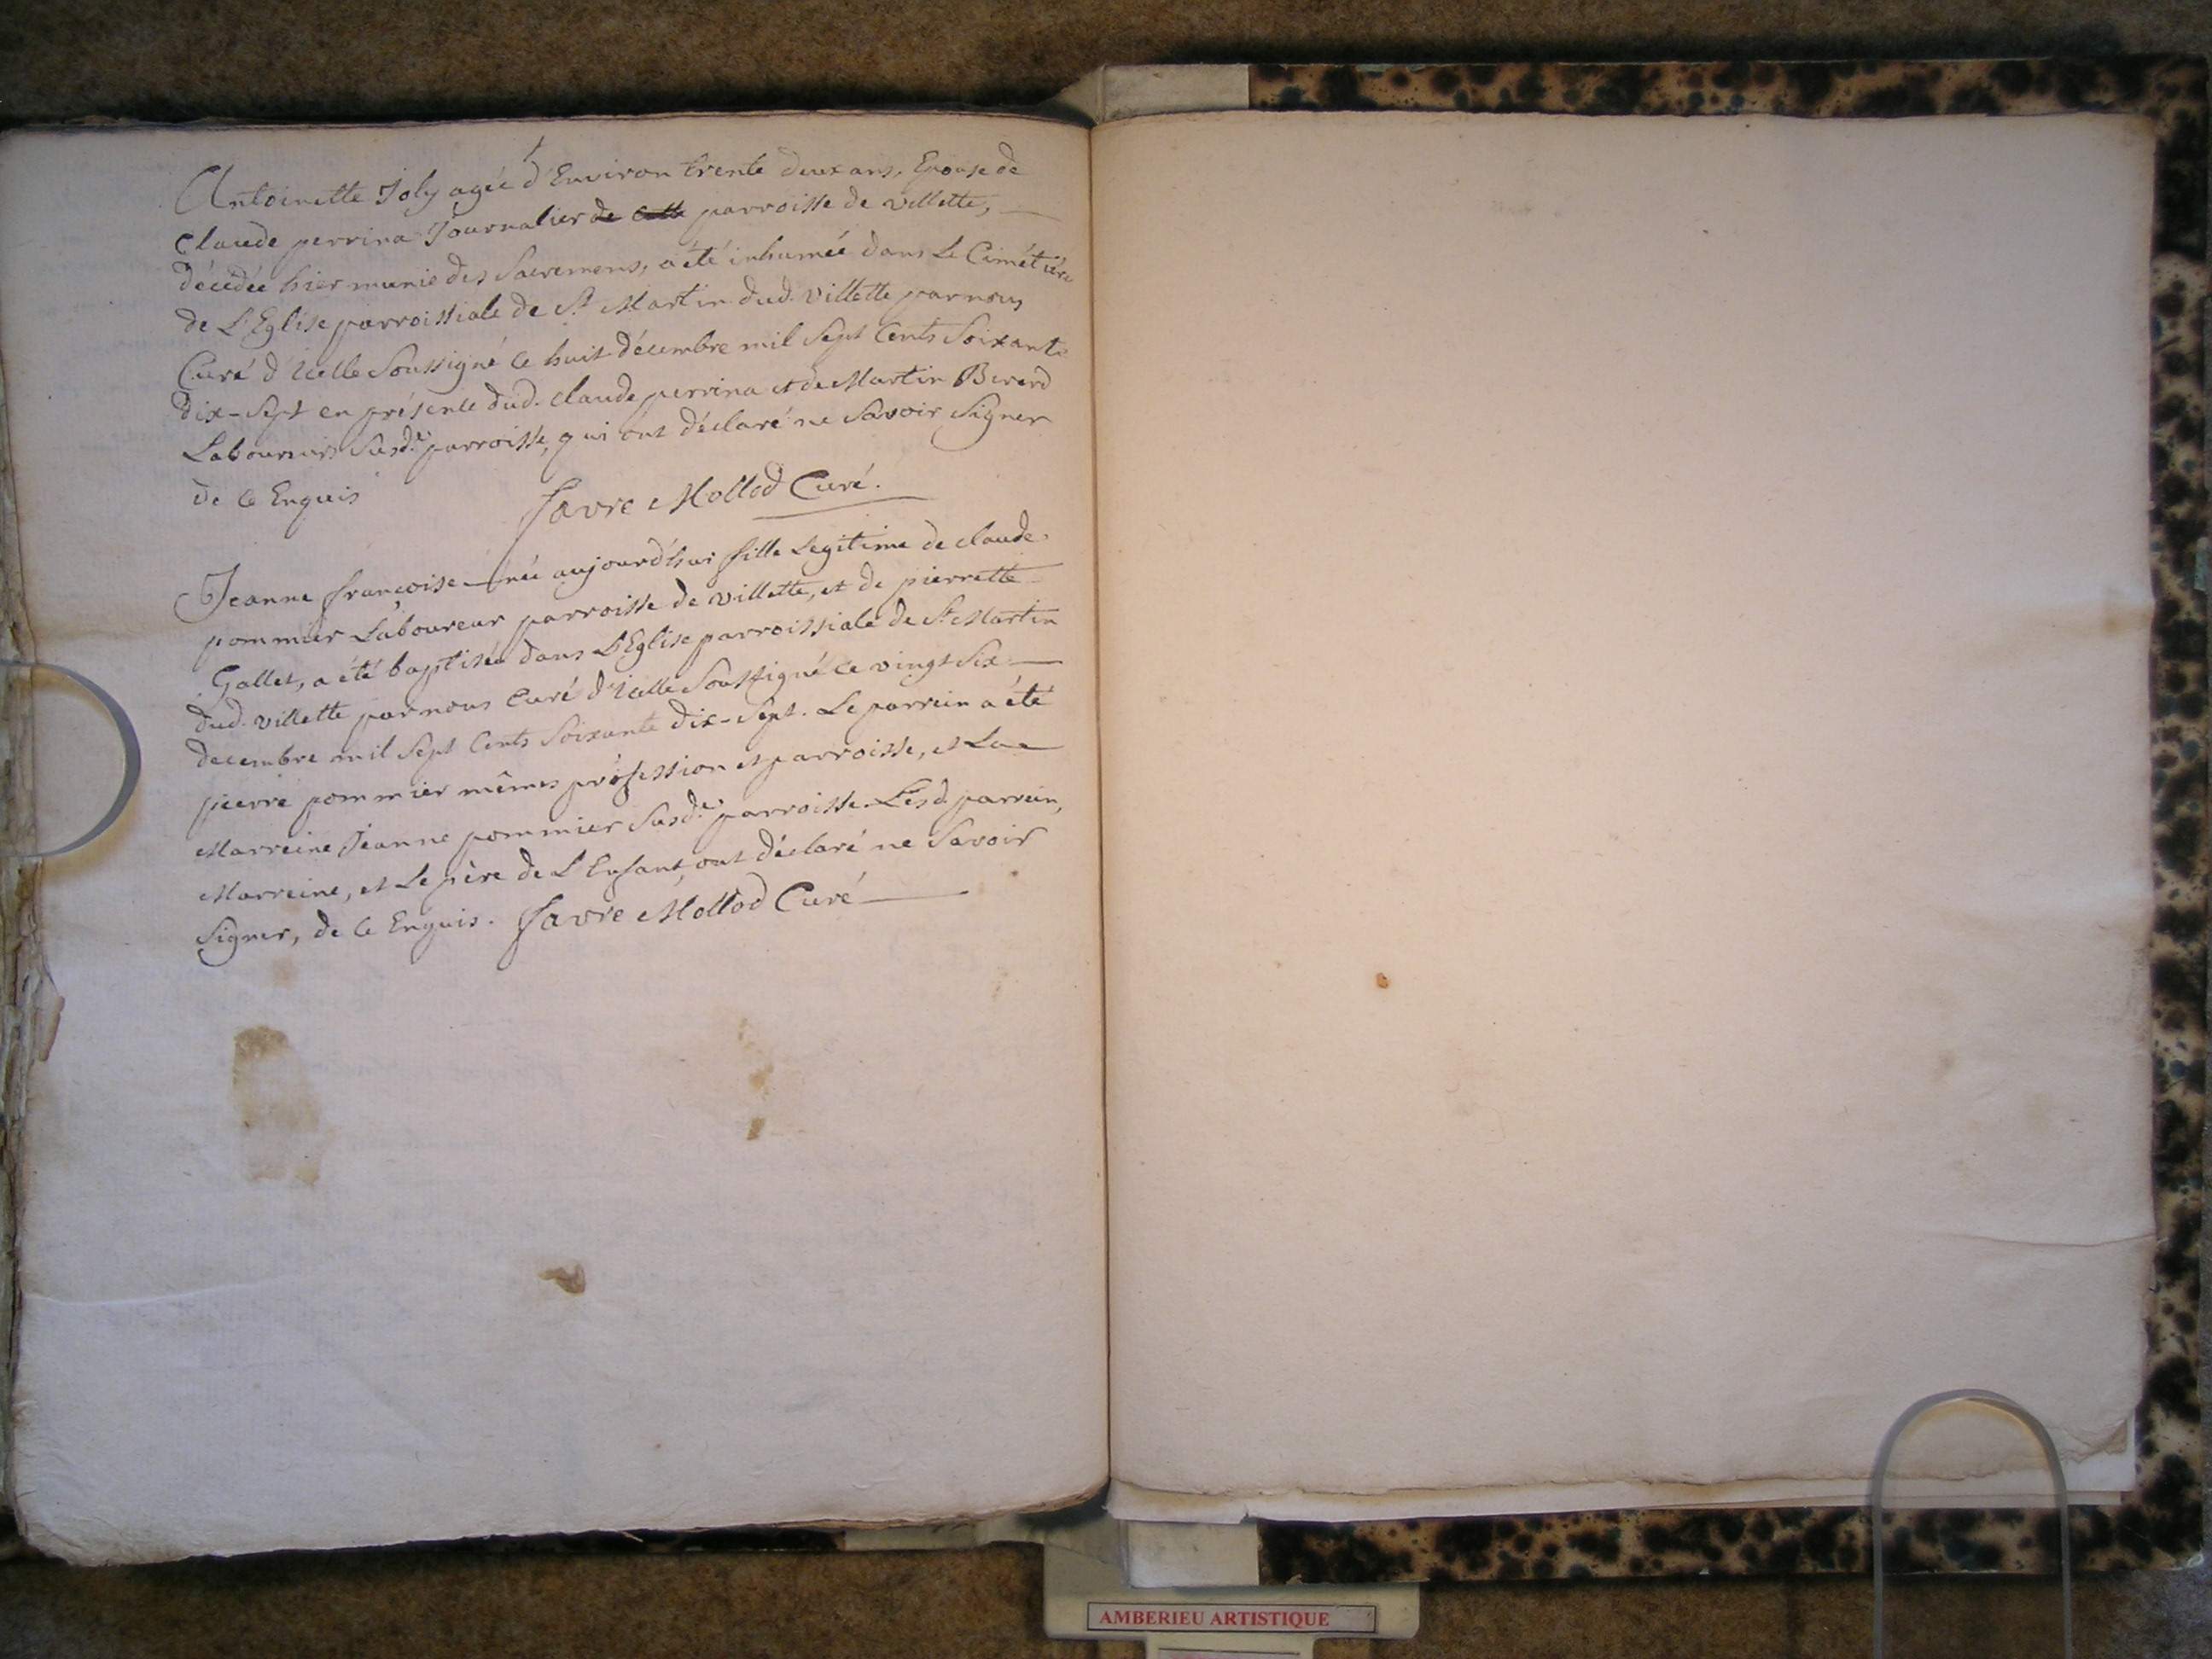 Antoinette Joly agée d'Environ trente deux ans, Epouse de
Claude perrina Journalier de cette parroisse de villette,
décédée hier munie des Sacremens, a été inhumée dans Le Cimétiére
de L'Eglise parroissiale de St Martin dud. villette par nous
Curé d'Icelle Soussigné ce huit décembre mil Sept Cents Soixante
dix-Sept en présence dud. claude perrina et de Martin Berard
Laboureurs Susd.e parroisse, qui ont déclaré ne Savoir Signer
de ce Enquis
favre Mollod Curé.
Jeanne françoise née aujourd'hui fille Legitime de claude
pommier Laboureur parroisse de villette, et de pierrette
Gallet, a été baptisée dans L'Eglise parroissiale de St Martin
dud. villette par nous Curé d'Icelle Soussigné ce vingt Six
decembre mil Sept Cents Soixante dix-Sept. Le parrein a été
pierre pommier mêmes profession et parroisse, et La
Marreine Jeanne pommier Susd.e parroisse. Lesd. parrein,
Marreine, et Le père de L'Enfant, ont déclaré ne Savoir
Signer, de ce Enquis. favre Mollod Curé
AMBERIEU ARTISTIQUE